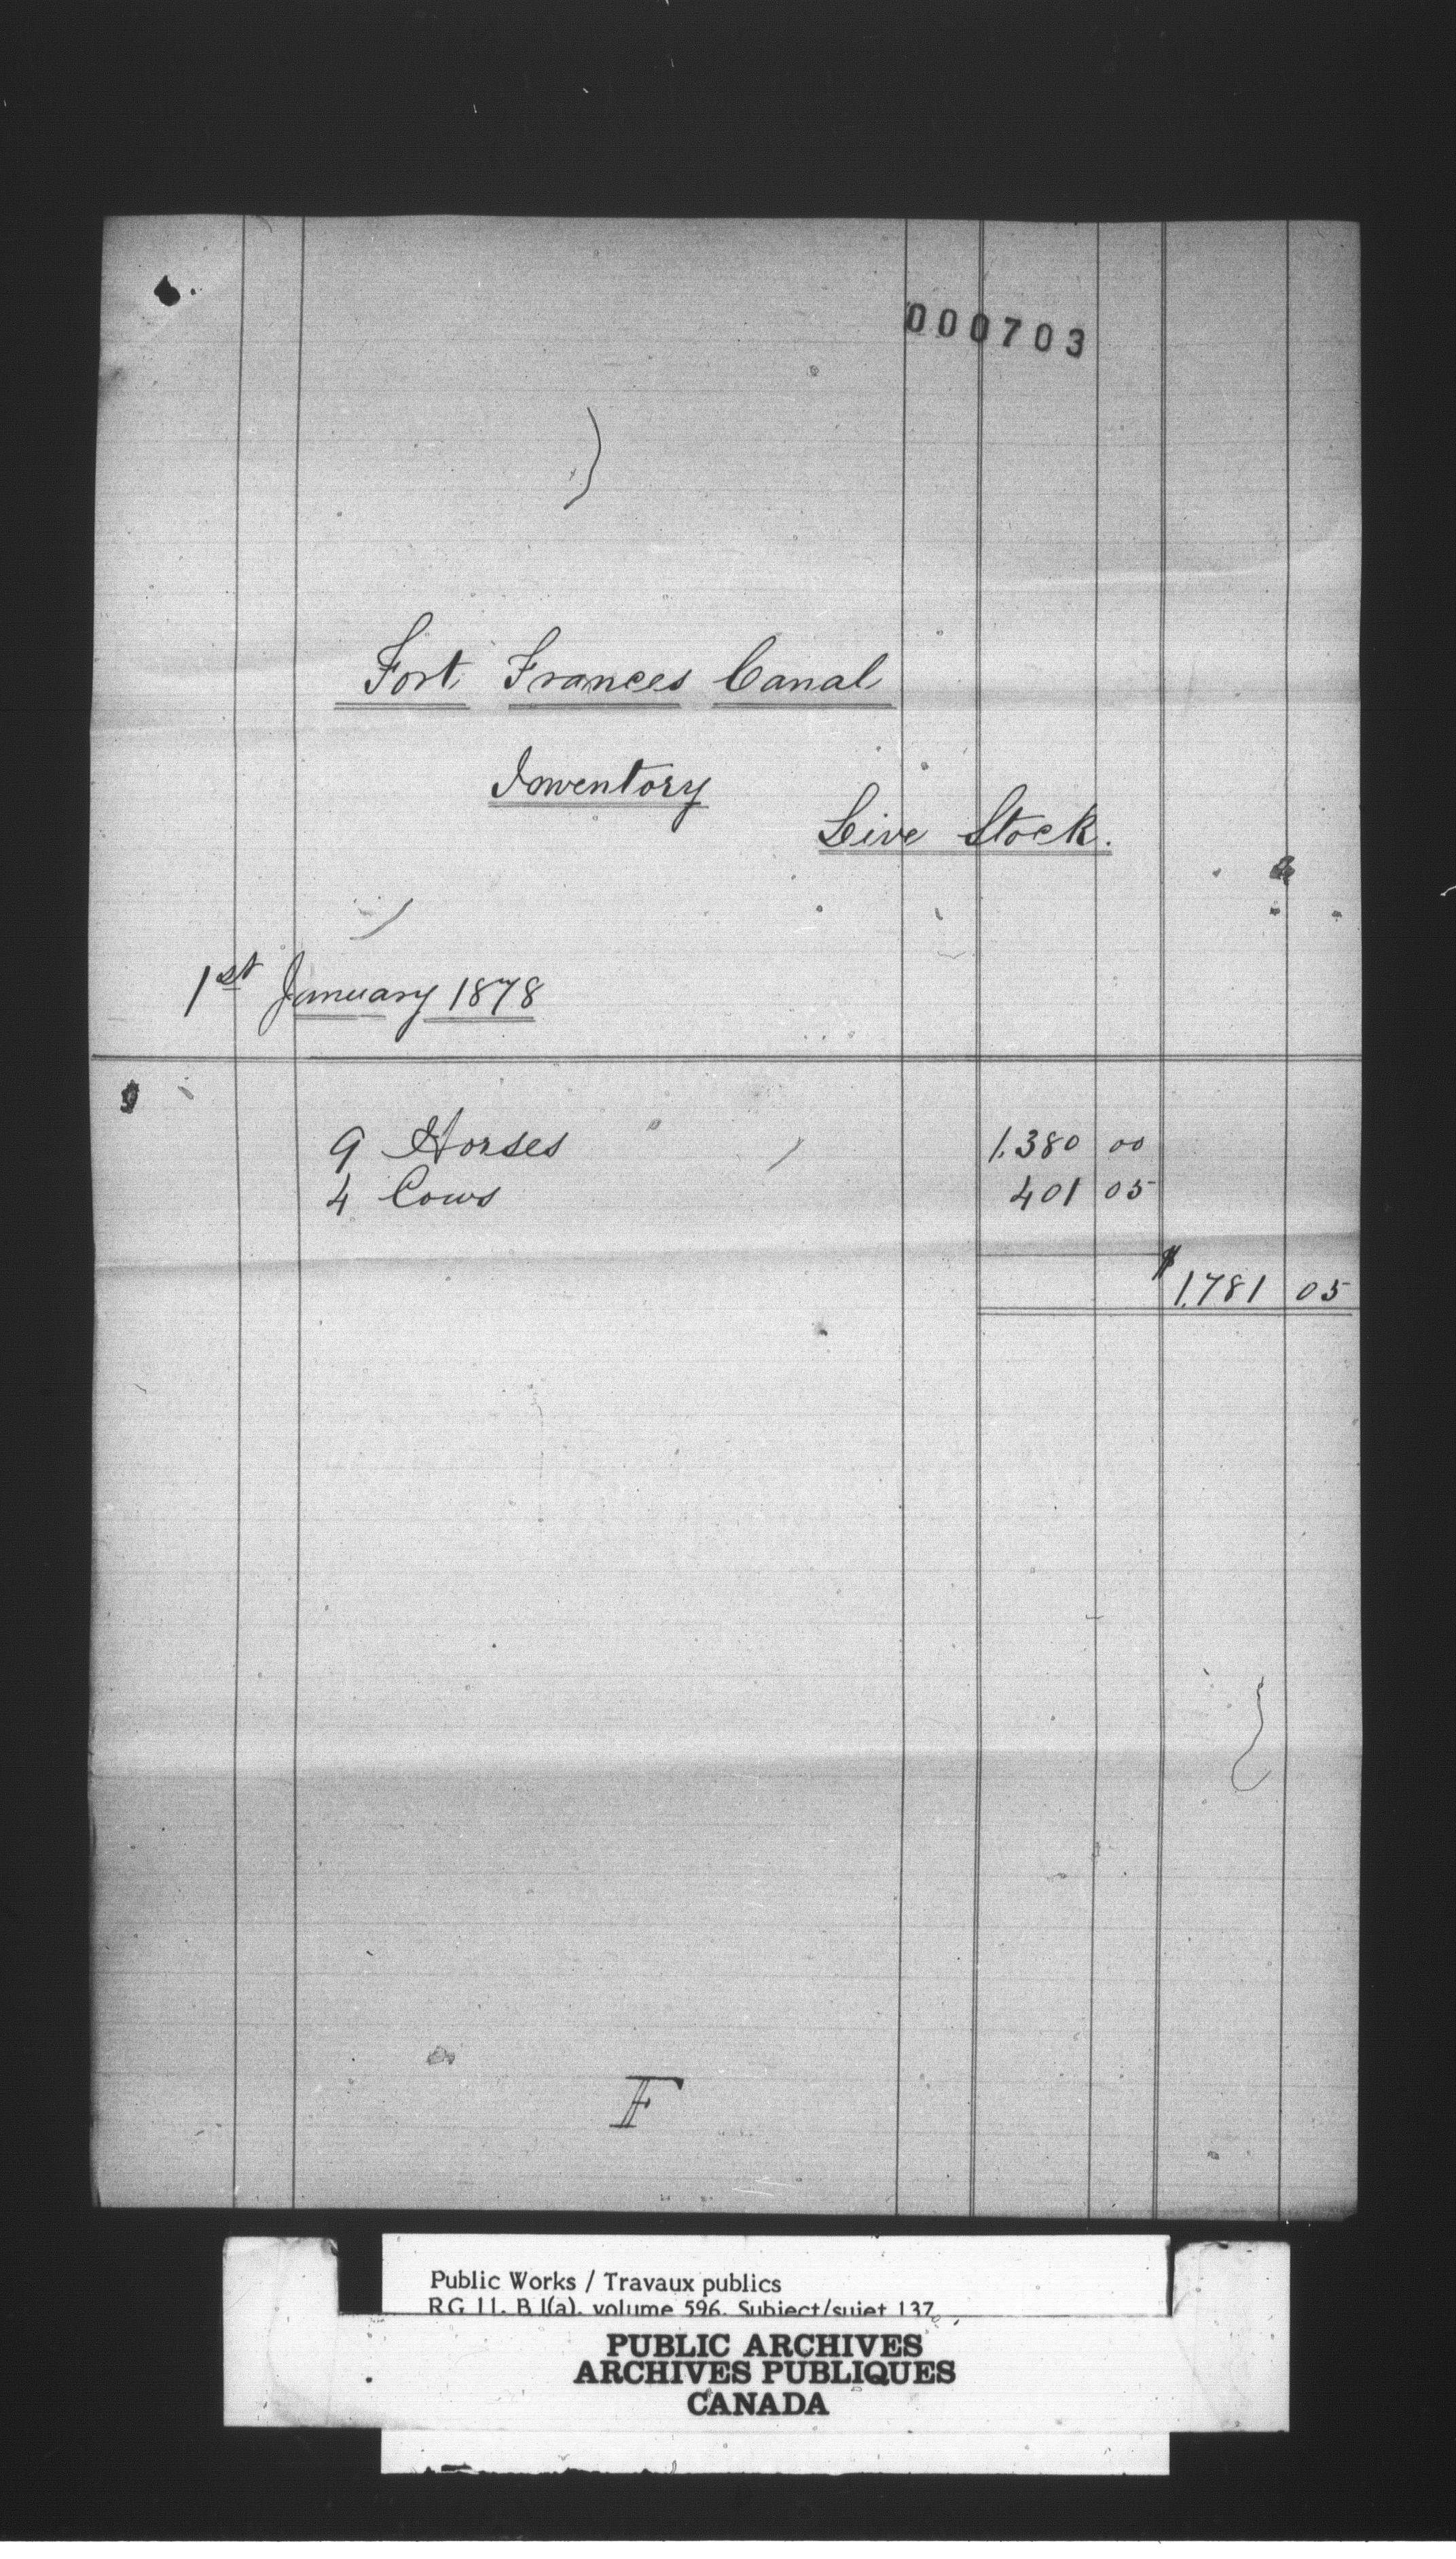 000703
Fort Frances Canal
Inventory
Live Stock.
1st January 1878
9 Horses 1.380 00
4 Cows 401 05
$ 1.781 05
F
Public Works / Travaux publics
RG 11, B 1(a), volume 596, Subject/sujet 137
PUBLIC ARCHIVES
ARCHIVES PUBLIQUES
CANADA